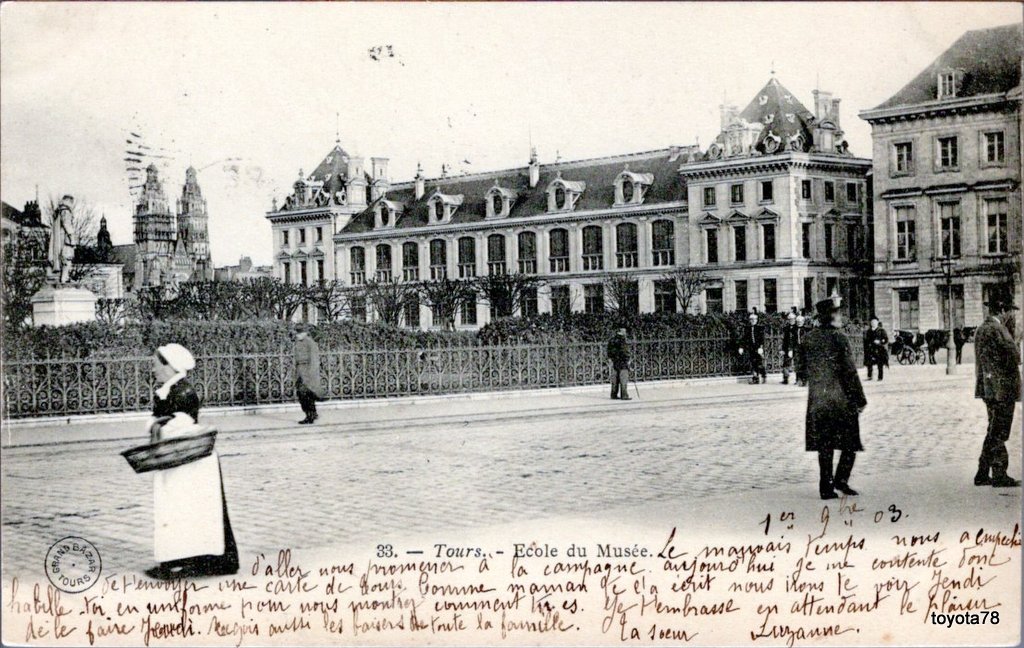 33. — Tours. - Ecole du Musée.
GRAND BAZAR
TOURS
1er 9bre 03.
Le mauvais temps nous a empêché
d'aller nous promener à la campagne. aujourd'hui je me contente donc
de t'envoyer une carte de Tours. Comme maman te l'a écrit nous irons te voir Jeudi
habille-toi en uniforme pour nous montrer comment tu es. Je t'embrasse en attendant le plaisir
de le faire Jeudi. Reçois aussi les baisers de toute la famille. Ta soeur Suzanne.
toyota78